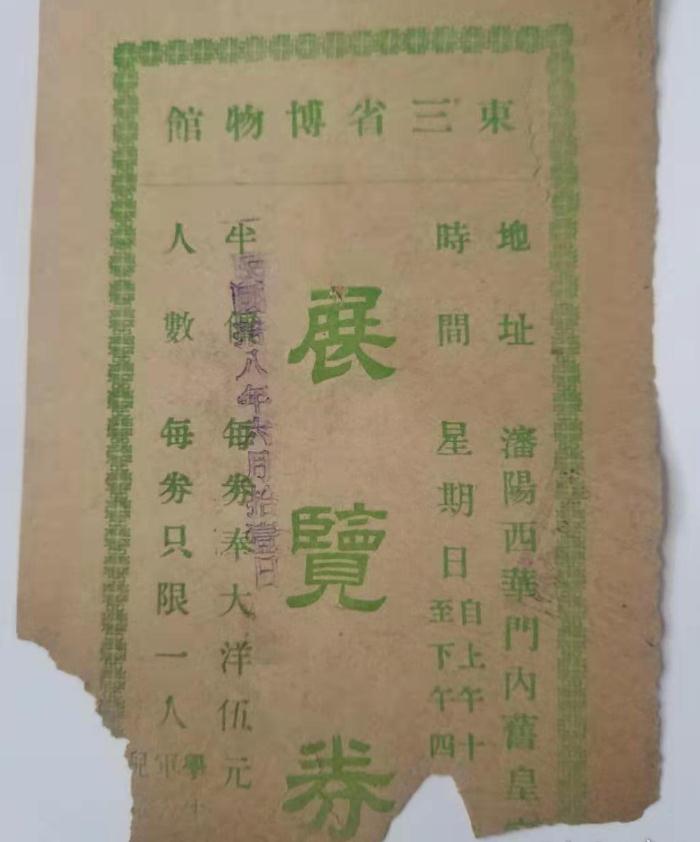 東三省博物館
地址 瀋陽西華門內舊皇
時間 星期日自上午十
至下午四
展覽券
半價 每券奉大洋伍元
國拾八年六月拾壹日
人數 每券只限一人
學
軍
兒